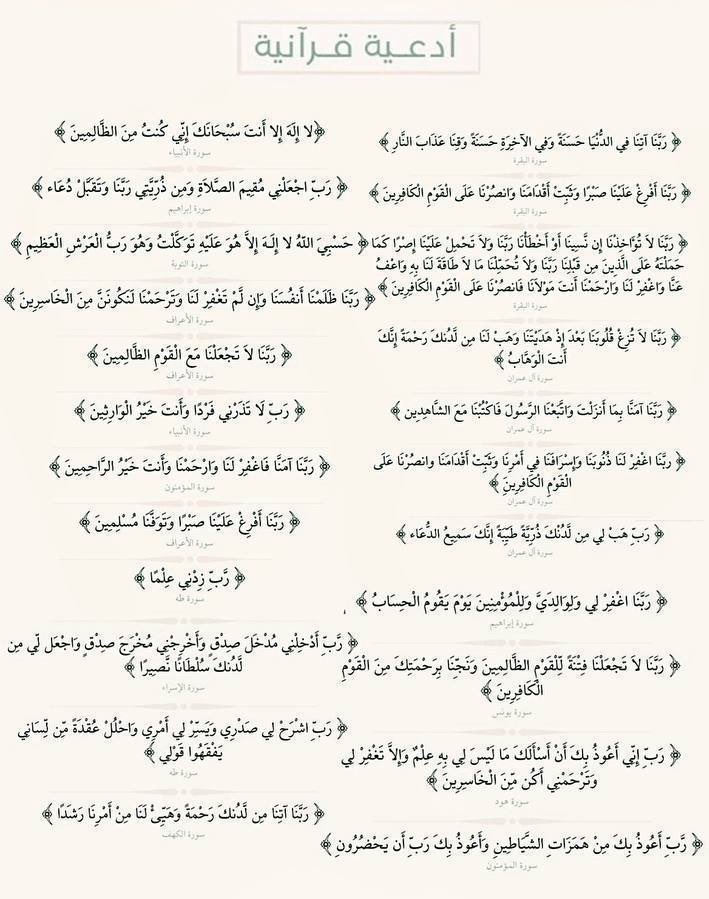 أدعـيـة قـرآنيـة
﴿ رَبَّنَا آتِنَا فِي الدُّنْيَا حَسَنَةً وَفِي الآخِرَةِ حَسَنَةً وَقِنَا عَذَابَ النَّارِ ﴾
سورة البقرة
﴿ رَبَّنَا أَفْرِغْ عَلَيْنَا صَبْرًا وَثَبِّتْ أَقْدَامَنَا وَانصُرْنَا عَلَى الْقَوْمِ الْكَافِرِينَ ﴾
سورة البقرة
﴿ رَبَّنَا لاَ تُؤَاخِذْنَا إِن نَّسِينَا أَوْ أَخْطَأْنَا رَبَّنَا وَلاَ تَحْمِلْ عَلَيْنَا إِصْرًا كَمَا
حَمَلْتَهُ عَلَى الَّذِينَ مِن قَبْلِنَا رَبَّنَا وَلاَ تُحَمِّلْنَا مَا لاَ طَاقَةَ لَنَا بِهِ وَاعْفُ
عَنَّا وَاغْفِرْ لَنَا وَارْحَمْنَا أَنتَ مَوْلاَنَا فَانصُرْنَا عَلَى الْقَوْمِ الْكَافِرِينَ ﴾
سورة البقرة
﴿ رَبَّنَا لاَ تُزِغْ قُلُوبَنَا بَعْدَ إِذْ هَدَيْتَنَا وَهَبْ لَنَا مِن لَّدُنكَ رَحْمَةً إِنَّكَ
أَنتَ الْوَهَّابُ ﴾
سورة آل عمران
﴿ رَبَّنَا آمَنَّا بِمَا أَنزَلْتَ وَاتَّبَعْنَا الرَّسُولَ فَاكْتُبْنَا مَعَ الشَّاهِدِينَ ﴾
سورة آل عمران
﴿ ربَّنَا اغْفِرْ لَنَا ذُنُوبَنَا وَإِسْرَافَنَا فِي أَمْرِنَا وَثَبِّتْ أَقْدَامَنَا وانصُرْنَا عَلَى
الْقَوْمِ الْكَافِرِينَ ﴾
سورة آل عمران
﴿ رَبِّ هَبْ لِي مِن لَّدُنْكَ ذُرِّيَّةً طَيِّبَةً إِنَّكَ سَمِيعُ الدُّعَاء ﴾
سورة آل عمران
﴿ رَبَّنَا اغْفِرْ لِي وَلِوَالِدَيَّ وَلِلْمُؤْمِنِينَ يَوْمَ يَقُومُ الْحِسَابُ ﴾
سورة إبراهيم
﴿ رَبَّنَا لاَ تَجْعَلْنَا فِتْنَةً لِّلْقَوْمِ الظَّالِمِينَ وَنَجِّنَا بِرَحْمَتِكَ مِنَ الْقَوْمِ
الْكَافِرِينَ ﴾
سورة يونس
﴿ رَبِّ إِنِّي أَعُوذُ بِكَ أَنْ أَسْأَلَكَ مَا لَيْسَ لِي بِهِ عِلْمٌ وَإِلاَّ تَغْفِرْ لِي
وَتَرْحَمْنِي أَكُن مِّنَ الْخَاسِرِينَ ﴾
سورة هود
﴿ رَّبِّ أَعُوذُ بِكَ مِنْ هَمَزَاتِ الشَّيَاطِينِ وَأَعُوذُ بِكَ رَبِّ أَن يَحْضُرُونِ ﴾
سورة المؤمنون
﴿لا إِلَهَ إِلا أَنتَ سُبْحَانَكَ إِنِّي كُنتُ مِنَ الظَّالِمِينَ ﴾
سورة الأنبياء
﴿ رَبِّ اجْعَلْنِي مُقِيمَ الصَّلاَةِ وَمِن ذُرِّيَّتِي رَبَّنَا وَتَقَبَّلْ دُعَاء ﴾
سورة إبراهيم
﴿ حَسْبِيَ اللّهُ لا إِلَهَ إِلاَّ هُوَ عَلَيْهِ تَوَكَّلْتُ وَهُوَ رَبُّ الْعَرْشِ الْعَظِيمِ ﴾
سورة التوبة
﴿ رَبَّنَا ظَلَمْنَا أَنفُسَنَا وَإِن لَّمْ تَغْفِرْ لَنَا وَتَرْحَمْنَا لَنَكُونَنَّ مِنَ الْخَاسِرِينَ ﴾
سورة الأعراف
﴿ رَبَّنَا لاَ تَجْعَلْنَا مَعَ الْقَوْمِ الظَّالِمِينَ ﴾
سورة الأعراف
﴿ رَبِّ لَا تَذَرْنِي فَرْدًا وَأَنتَ خَيْرُ الْوَارِثِينَ ﴾
سورة الأنبياء
﴿ رَبَّنَا آمَنَّا فَاغْفِرْ لَنَا وَارْحَمْنَا وَأَنتَ خَيْرُ الرَّاحِمِينَ ﴾
سورة المؤمنون
﴿ رَبَّنَا أَفْرِغْ عَلَيْنَا صَبْرًا وَتَوَفَّنَا مُسْلِمِينَ ﴾
سورة الأعراف
﴿ رَّبِّ زِدْنِي عِلْمًا ﴾
سورة طه
﴿ رَّبِّ أَدْخِلْنِي مُدْخَلَ صِدْقٍ وَأَخْرِجْنِي مُخْرَجَ صِدْقٍ وَاجْعَل لِّي مِن
لَّدُنكَ سُلْطَانًا نَّصِيرًا ﴾
سورة الإسراء
﴿ رَبِّ اشْرَحْ لِي صَدْرِي وَيَسِّرْ لِي أَمْرِي وَاحْلُلْ عُقْدَةً مِّن لِّسَانِي
يَفْقَهُوا قَوْلِي ﴾
سورة طه
﴿ رَبَّنَا آتِنَا مِن لَّدُنكَ رَحْمَةً وَهَيِّئْ لَنَا مِنْ أَمْرِنَا رَشَدًا ﴾
سورة الكهف